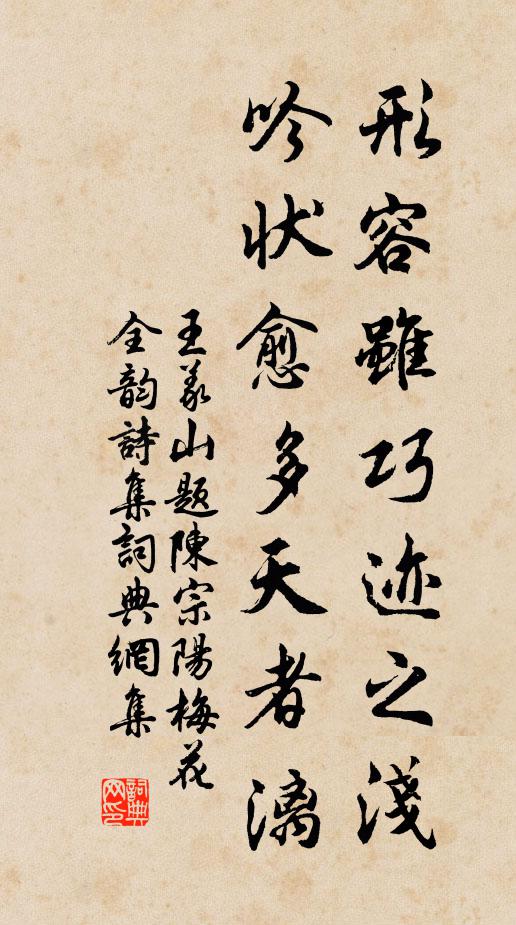 形容雖巧迹之淺
吟状愈多天者漓
王义山題陳宗陽梅花
全韵詩集詞典網集
詞典网印